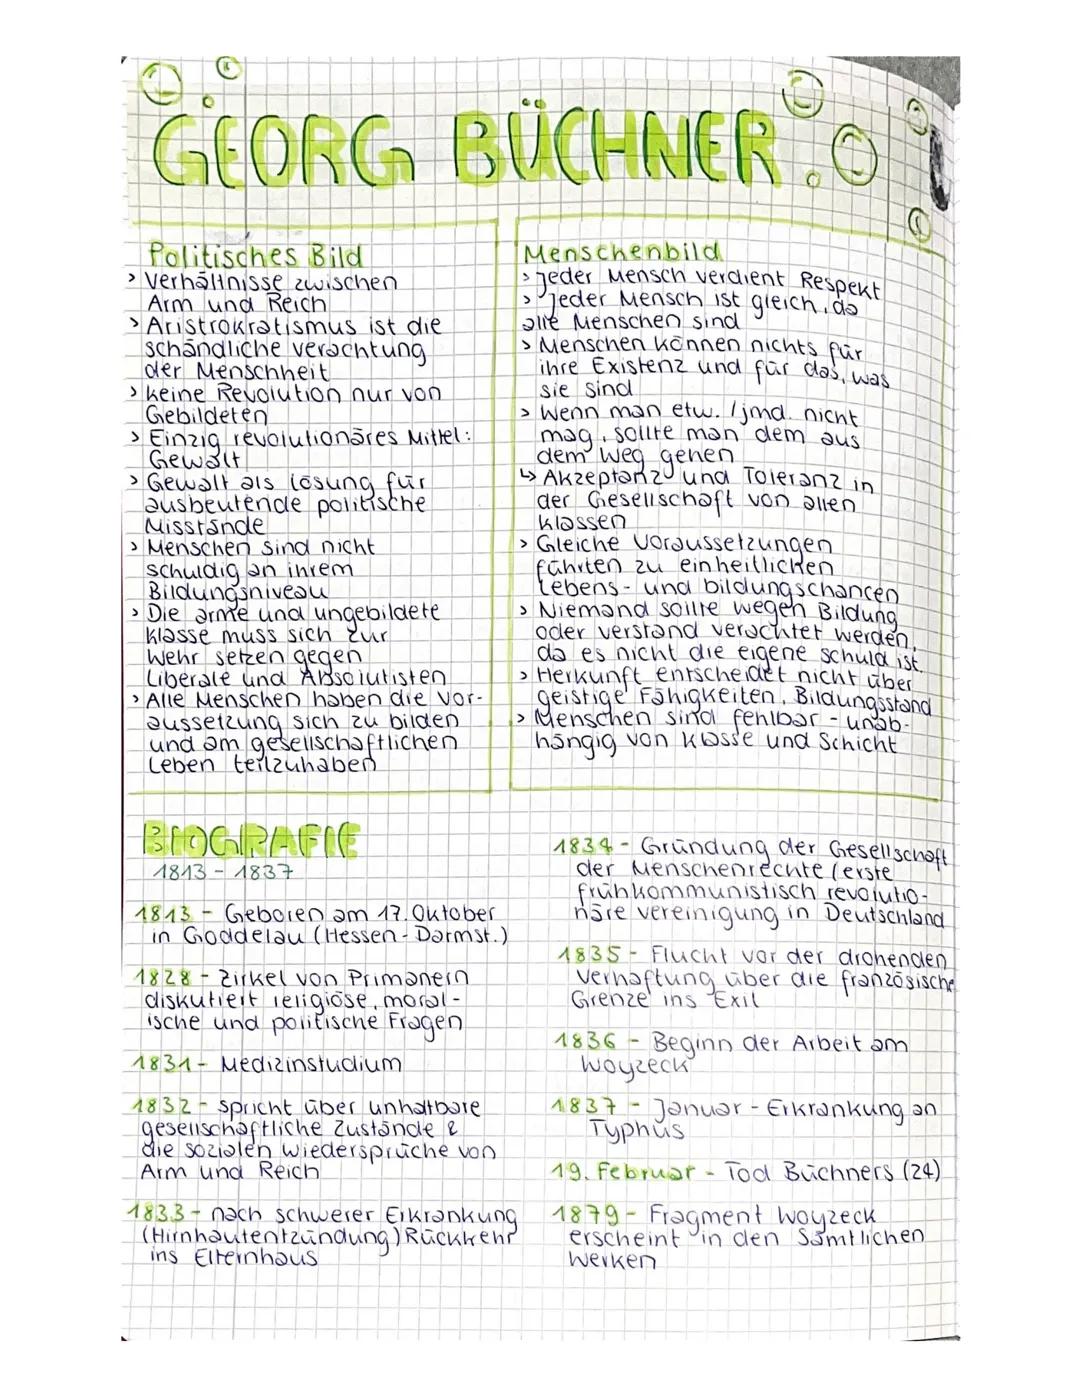 GEORG BÜCHNER
Politisches Bild
> Verhältnisse zwischen
Arm und Reich
> Aristrokratismus ist die
schändliche Verachtung
der Menschheit
> keine Revolution nur von
Gebildeten
> Einzig revolutionäres Mittel:
Gewalt
> Gewalt als Lösung für
ausbeutende politische
Missstände
> Menschen sind nicht
schuldig an ihrem
Bildungsniveau
> Die arme und ungebildete
Klasse muss sich zur
Wehr setzen gegen
Liberale und Absolutisten
> Alle Menschen haben die Vor-
aussetzung sich zu bilden
und am gesellschaftlichen
Leben teilzuhaben
Menschenbild
> Jeder Mensch verdient Respekt
> Jeder Mensch ist gleich, da
alle Menschen sind
> Menschen können nichts für
ihre Existenz und für das, was
sie sind
> Wenn man etw. / jmd. nicht
mag, sollte man dem aus
dem Weg gehen
↳ Akzeptanz und Toleranz in
der Gesellschaft von allen
Klassen
> Gleiche Voraussetzungen
führten zu einheitlichen
Lebens- und bildungschancen
> Niemand sollte wegen Bildung
oder verstand verachtet werden,
da es nicht die eigene schuld ist
> Herkunft entscheidet nicht über
geistige Fähigkeiten, Bildungsstand
> Menschen sind fehlbar - unab-
hängig von Klasse und Schicht
BIOGRAFIE
1813 - 1837
1813 - Geboren am 17. Oktober
in Goddelau (Hessen-Darmst.)
1828 - Zirkel von Primanern
diskutiert religiöse, moral-
ische und politische Fragen
1831 - Medizinstudium
1832 - spricht über unhaltbare
gesellschaftliche Zustände &
die sozialen Wiedersprüche von
Arm und Reich
1833 - nach schwerer Erkrankung
(Hirnhautentzündung) Rückkehr
ins Elternhaus
1834 - Gründung der Gesellschaft
der Menschenrechte (erste
frühkommunistisch revolutio-
näre Vereinigung in Deutschland
1835 - Flucht vor der drohenden
Verhaftung über die französische
Grenze ins Exil
1836 - Beginn der Arbeit am
Woyzeck
1837 - Januar - Erkrankung an
Typhus
19. Februar - Tod Büchners (24)
1879 - Fragment Woyzeck
erscheint in den Sämtlichen
Werken